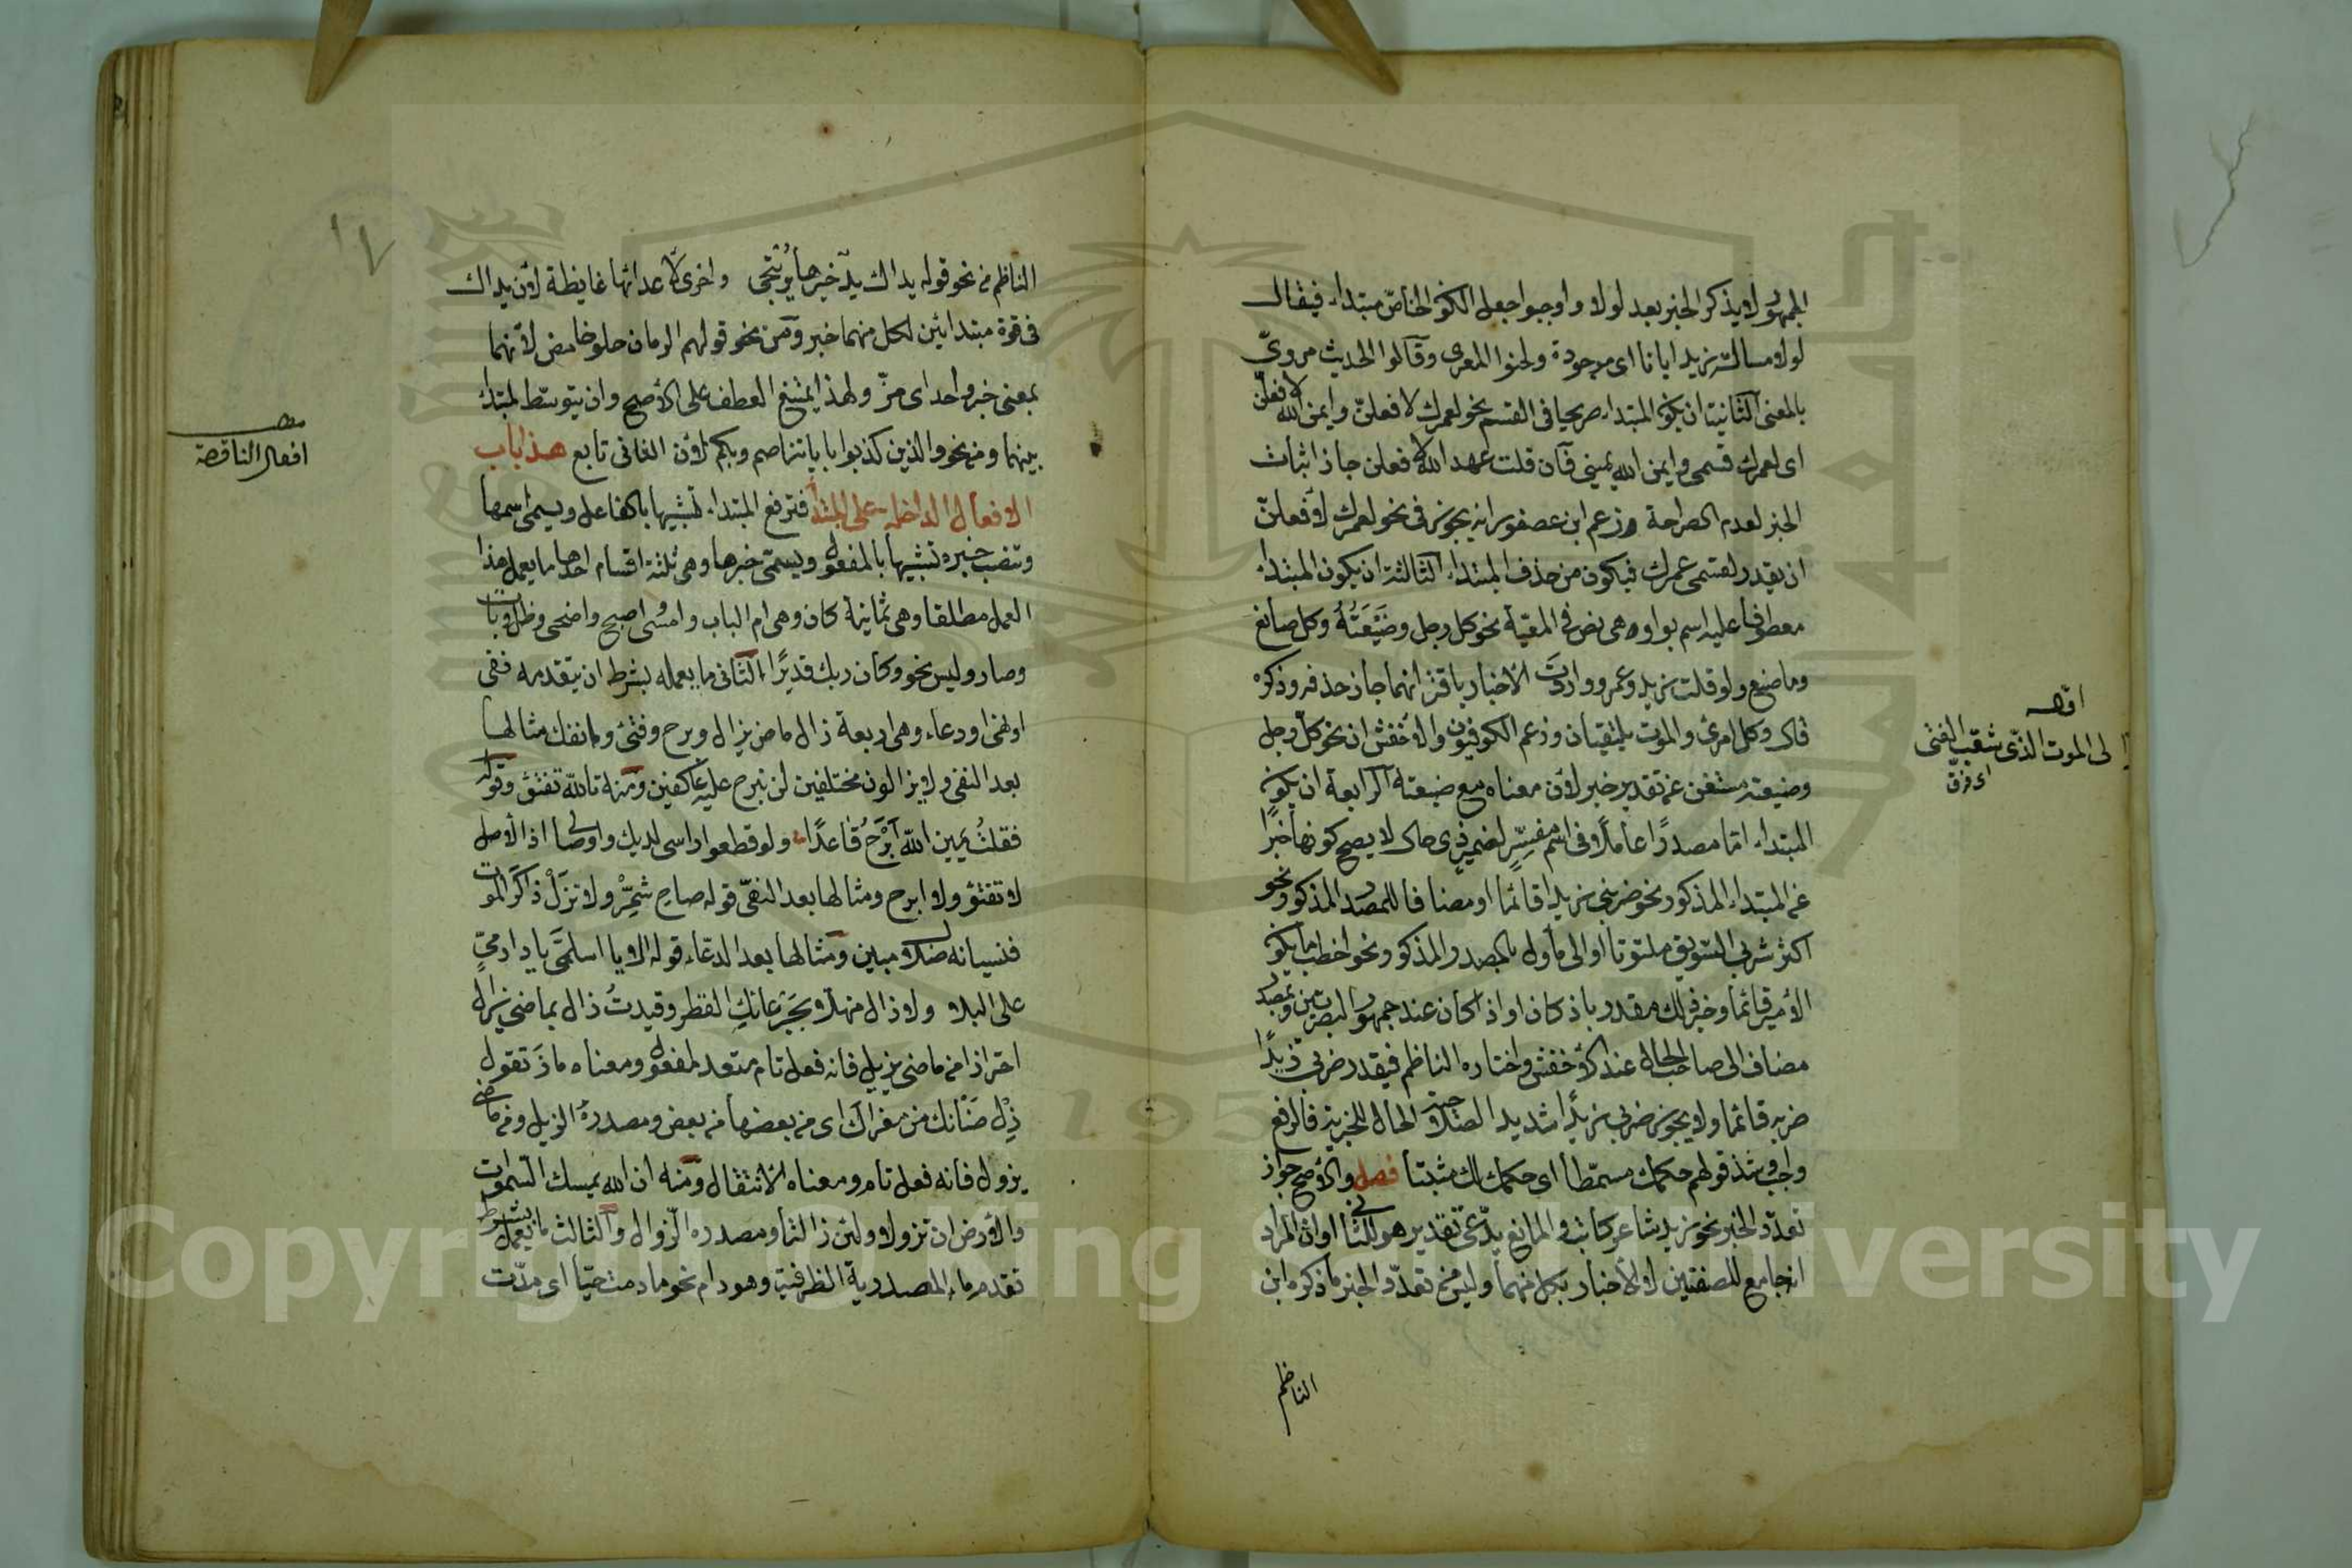 الجمهور لا يذكر الخبر بعد لولا واوجبوا جعل الكون الخاص مبتداء فيقال
لولا مسالمة زيد ايانا اى موجودة ولحنوا المعرى وقالوا الحديث مروىّ
بالمعنى الثانية ان يكون المبتداء صريحا فى القسم نحو لعمرك لافعلنّ وايمن الله لافعلنّ
اى لعمرك قسمى وايمن الله يمينى فان قلت عهد الله لافعلن جاز اثبات
الخبر لعدم الصراحة وزعم ابن عصفور انه يجوز فى نحو لعمرك لافعلنّ
ان يقدر لقسمى عمرك فيكون من حذف المبتداء الثالثة ان يكون المبتداء
معطوفا عليه اسم بواو هى نص فى المعيّة نحو كل رجل وضَيْعَتُهُ وكل صانع
وما صنع ولو قلت زيد وعمرو واردت الاخبار باقترانهما جاز حذفه وذكره
قال وكل امرئ والموت يلتقيان وزعم الكوفيون والاخفش ان نحو كل رجل
وضيعته مستغن عن تقدير خبر لان معناه مع ضيعته الرابعة ان يكون
المبتداء اما مصدرًا عاملا فى اسم مفسِّرٍ لضميرٍ ذى حال لا يصح كونها خبرًا
عن المبتداء المذكور نحو ضربى زيدا قائما او مضافا للمصدر المذكور نحو
اكثر شربى السّويق ملتوتا او الى مأول بالمصدر المذكور نحو اخطب ما يكون
الامير قائما وخبر ذلك مقدر باذ كان او اذا كان عند جمهور البصريين وبمصدر
مضاف الى صاحب الحال عند الاخفش واختاره الناظم فيقدر ضربى زيدًا
ضربه قائما ولا يجوز ضربى زيدًا شديدا لصلاحية الحال للخبرية فالرفع
واجب وشذ قولهم حكمك مسمّطا اى حكمك لك مثبتا فصل والاصح جواز
تعدّد الخبر نحو زيد شاعر كاتب والمانع يدّعى تقدير هو للثانى او ان المراد
انه جامع للصفتين لا الاخبار بكل منهما وليس من تعدّد الخبر ما ذكره ابن
الناظم
اوله
الى الموت الذى يشعب الفتى
اى يفرق
١٧
الناظم من نحو قوله يداك يدٌ خيرها يُرتجى واخرى لاعدائها غايظة لان يداك
فى قوة مبتدائين لكل منهما خبر ومن نحو قولهم الرمان حلو حامض لانهما
بمعنى خبر واحد اى مزّ ولهذا يمتنع العطف على الاصح وان يتوسّط المبتداء
بينهما ومن نحو والذين كذبوا باياتنا صم وبكم لان الثانى تابع هذا باب
الافعال الداخلة على المبتدأ فترفع المبتداء تشبيها بالفاعل ويسمى اسمها
وتنصب خبره تشبيها بالمفعول ويسمّى خبرها وهى ثلثة اقسام احدها ما يعمل هذا
العمل مطلقا وهى ثمانية كان وهى ام الباب وامسى واصبح واضحى وظل وبات
وصار وليس نحو وكان ربك قديرًا الثانى ما يعمله بشرط ان يتقدمه نفى
او نهى او دعاء وهى اربعة زال ماضى يزال وبرح وفتئ وانفك مثالها
بعد النفى ولا يزالون مختلفين لن نبرح عليه عاكفين ومنه تالله تفتؤ وقوله
فقلتُ يمين الله ابْرَحُ قاعدًا ولو قطعوا راسى لديك واوصالى اذ الاصل
لا تفتؤ ولا ابرح ومثالها بعد النهى قوله صاحِ شمِّرْ ولا تزَلْ ذاكرَ الموت
فنسيانه ضلال مبين ومثالها بعد الدعاء قوله الا يا اسلمى يا دار مىّ
على البلا ولا زال منهلّا بجَرْعائك القطر وقيدتُ زال بماضى يزال
احترازا من ماضى يزيل فانه فعل تام متعد لمفعول ومعناه ماز تقول
زِلْ ضَانك من معزاك اى من بعضها من بعض ومصدره الزيل ومن ماضى
يزول فانه فعل تام ومعناه الانتقال ومنه ان الله يمسك السّموات
والارض ان تزولا ولئن زالتا ومصدره الزّوال والثالث ما يعمل بشرط
تقدم ما المصدرية الظرفية وهو دام نحو ما دمت حيّا اى مدّت
مطلب
افعال الناقصة
Copyright © King Saud University
195